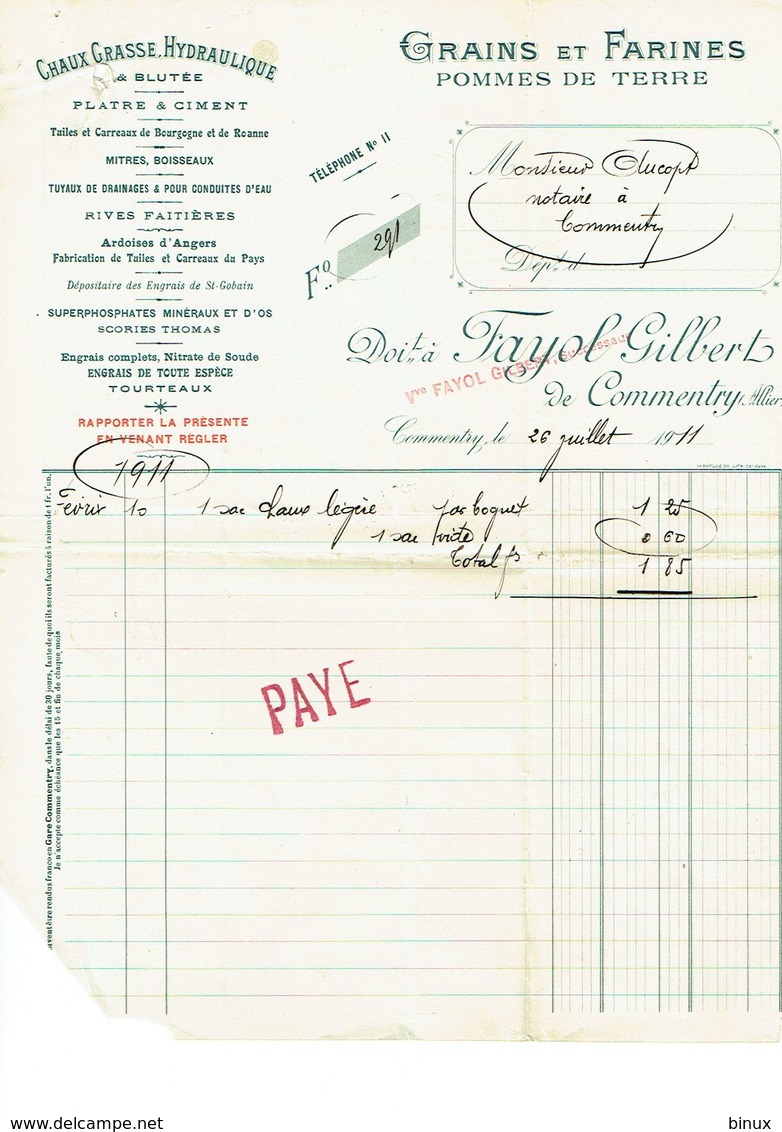 CHAUX GRASSE, HYDRAULIQUE
& BLUTÉE
PLATRE & CIMENT
Tuiles et Carreaux de Bourgogne et de Roanne
MITRES, BOISSEAUX
TUYAUX DE DRAINAGES & POUR CONDUITES D'EAU
RIVES FAITIÈRES
Ardoises d'Angers
Fabrication de Tuiles et Carreaux du Pays
Dépositaire des Engrais de St-Gobain
SUPERPHOSPHATES MINÉRAUX ET D'OS
SCORIES THOMAS
Engrais complets, Nitrate de Soude
ENGRAIS DE TOUTE ESPÈCE
TOURTEAUX
RAPPORTER LA PRÉSENTE
EN VENANT RÉGLER
GRAINS ET FARINES
POMMES DE TERRE
TÉLÉPHONE No 11
Fo 291
Monsieur
notaire à
Commentry
Dépt. d
Doit à Fayol Gilbert
Vve FAYOL GILBERT, Successeur
de Commentry (Allier
Commentry, le 26 juillet 1911
1911
10 1 sac chaux légère 1 25
1 sac vide 0 60
Total fs 1 85
PAYE
être rendus franco en Gare Commentry, dans le délai de 30 jours, faute de quoi ils seront facturés à raison de 1 fr. l'un.
Je n'accepte comme échéance que les 15 et fin de chaque mois
www.delcampe.net
binux